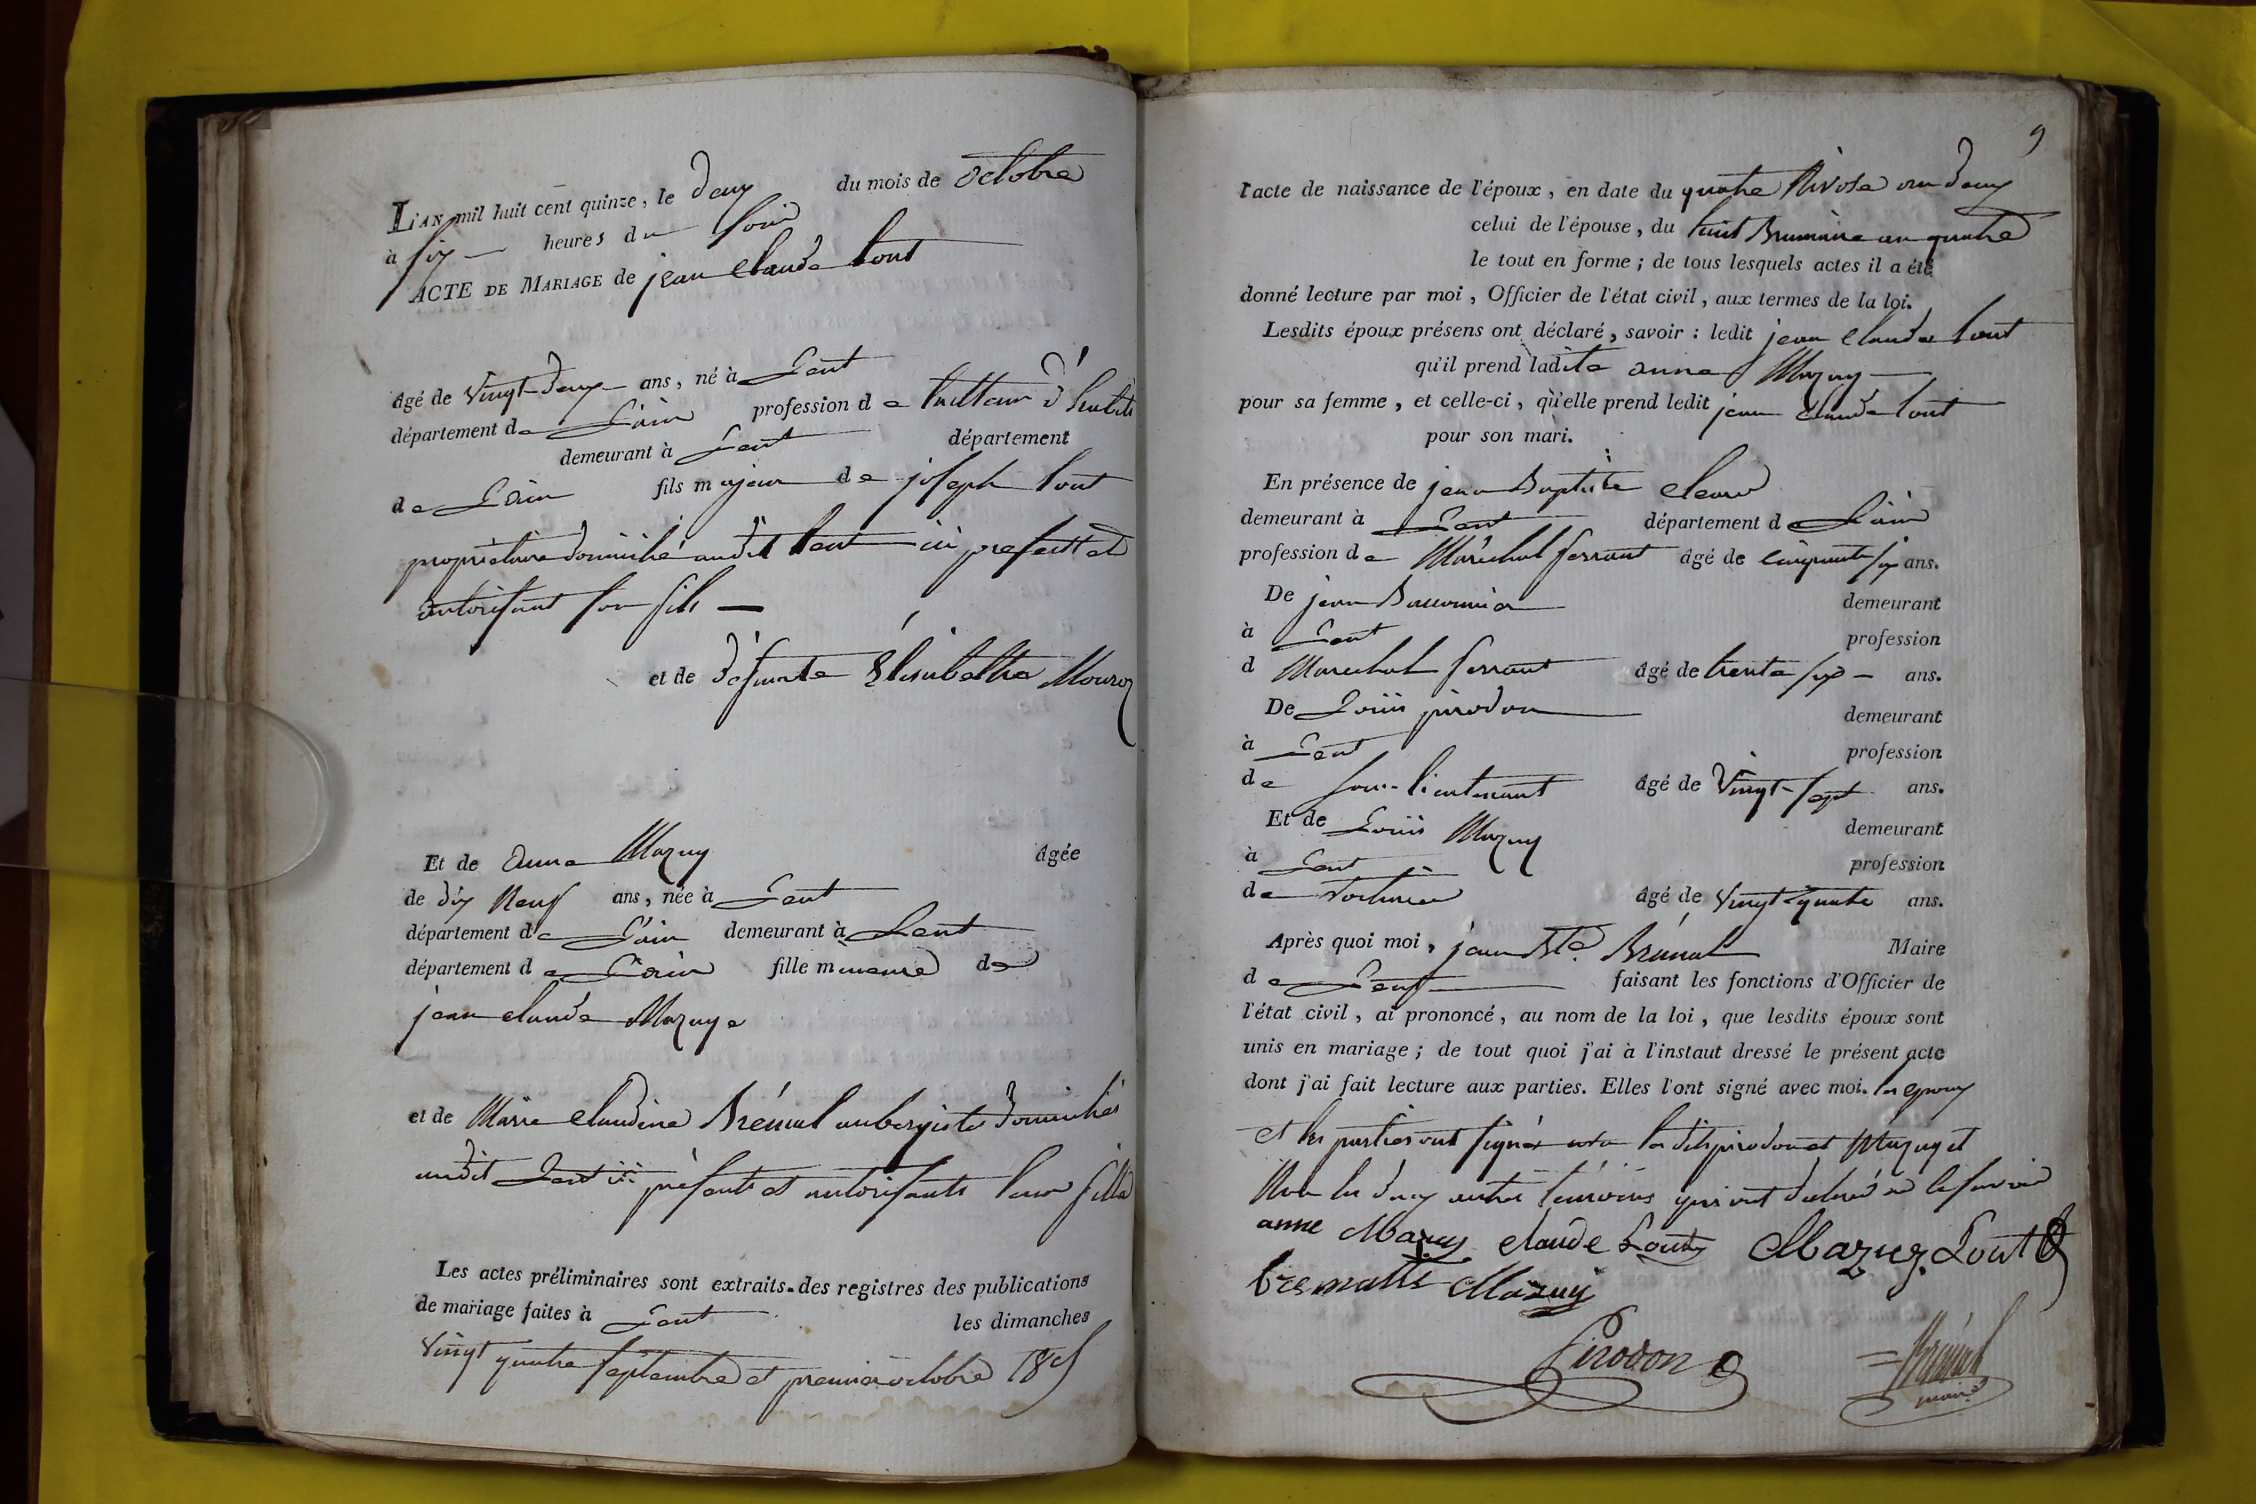 L'AN mil huit cent quinze, le deux du mois de octobre
à six heures du soir
ACTE DE MARIAGE de jean claude Lout
âgé de vingt-deux ans, né à Lent
département de L'ain profession de tailleur d'habits
demeurant à Lent département
de L'ain fils majeur de joseph Lout
propriétaire domicilié audit Lent ici présent et
autorisant son fils
et de défunte Élisabethe Mouroz
Et de anne Mazuy âgée
de dix neuf ans, née à Lent
département de L'ain demeurant à Lent
département de L'ain fille mineure de
jean claude Mazuye
et de Marie claudine Brémal aubergiste domiciliés
audit Lent ici présents et autorisants leur fille
Les actes préliminaires sont extraits des registres des publications
de mariage faites à Lent les dimanches
vingt quatre septembre et premier octobre 1815
9
l'acte de naissance de l'époux, en date du quatre Nivose an deux
celui de l'épouse, du huit Brumaire an quatre
le tout en forme ; de tous lesquels actes il a été
donné lecture par moi, Officier de l'état civil, aux termes de la loi.
Lesdits époux présens ont déclaré, savoir : ledit jean claude Lout
qu'il prend ladite anne Mazuy
pour sa femme, et celle-ci, qu'elle prend ledit jean claude Lout
pour son mari.
En présence de jean Baptiste
demeurant à Lent département de L'ain
profession de Maréchal ferrant âgé de cinquante six ans.
De jean demeurant
à Lent profession
d Marechal ferrant âgé de trente six ans.
De Louis pirodon demeurant
à Lent profession
de sous-lieutenant âgé de vingt-sept ans.
Et de Louis Mazuy demeurant
à Lent profession
de voiturier âgé de vingt-quatre ans.
Après quoi moi, jean Bte. Brémal Maire
de Lent faisant les fonctions d'Officier de
l'état civil, ai prononcé, au nom de la loi, que lesdits époux sont
unis en mariage ; de tout quoi j'ai à l'instaut dressé le présent acte
dont j'ai fait lecture aux parties. Elles l'ont signé avec moi. les epoux
et les parties ont signé avec les dits pirodon et Mazuy et
Non les deux autres témoins qui ont déclaré ne le savoir
anne Mazuy claude Lout Mazuy Lout
Mazuy
Pirodon Brémal
maire